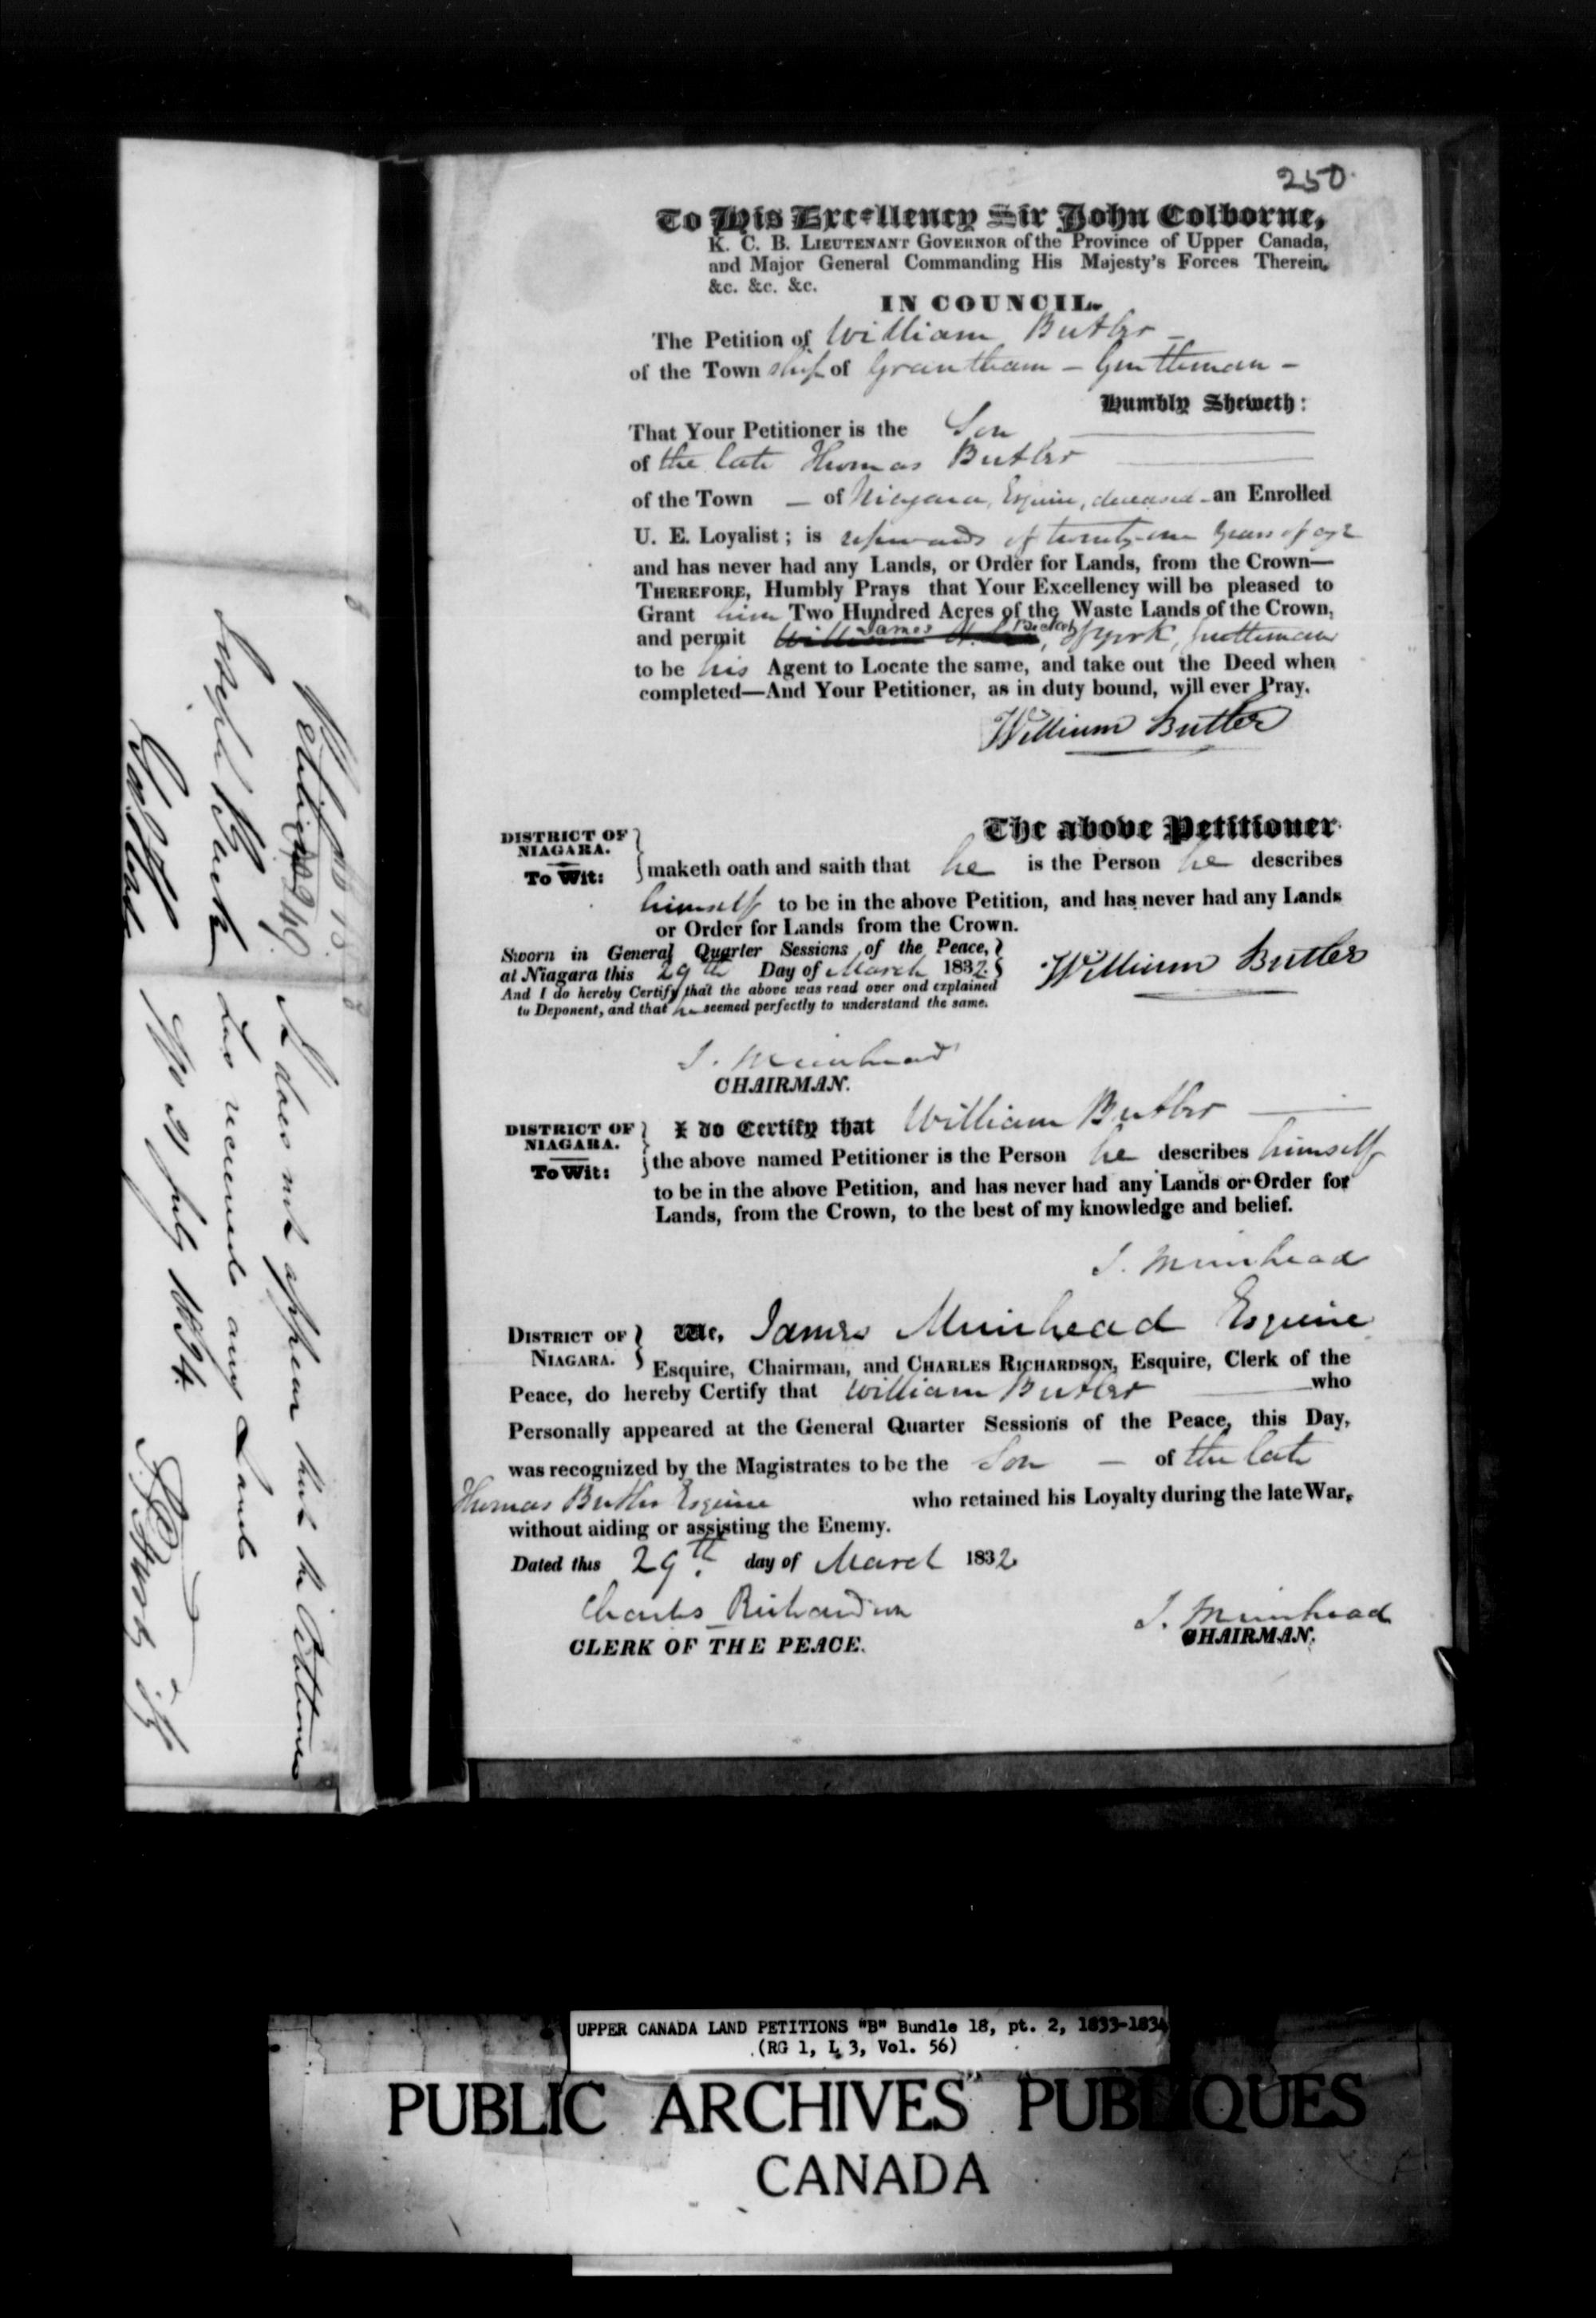 250
To His Excellency Sir John Colborne,
K. C. B. LIEUTENANT GOVERNOR of the Province of Upper Canada,
and Major General Commanding His Majesty's Forces Therein.
&c. &c. &c.
IN COUNCIL.
The Petition of William Butler —
of the Town ship of Grantham — Gentleman —
Humbly Sheweth:
That Your Petitioner is the Son
of the late Thomas Butler
of the Town — of Niagara, Esquire, deceased — an Enrolled
U. E. Loyalist; is upwards of twenty-one years of age
and has never had any Lands, or Order for Lands, from the Crown—
THEREFORE, Humbly Prays that Your Excellency will be pleased to
Grant him Two Hundred Acres of the Waste Lands of the Crown,
and permit James , of York, Gentleman
to be his Agent to Locate the same, and take out the Deed when
completed—And Your Petitioner, as in duty bound, will ever Pray.
William Butler
The above Petitioner
DISTRICT OF
NIAGARA.
To Wit:
maketh oath and saith that he is the Person he describes
himself to be in the above Petition, and has never had any Lands
or Order for Lands from the Crown.
Sworn in General Quarter Sessions of the Peace,
at Niagara this 29th Day of March 1832.
And I do hereby Certify that the above was read over ond explained
to Deponent, and that he seemed perfectly to understand the same.
William Butler
J. Muirhead
CHAIRMAN.
DISTRICT OF
NIAGARA.
To Wit:
I do Certify that William Butler
the above named Petitioner is the Person he describes himself
to be in the above Petition, and has never had any Lands or Order for
Lands, from the Crown, to the best of my knowledge and belief.
J. Muirhead
DISTRICT OF
NIAGARA.
We, James Muirhead Esquire
Esquire, Chairman, and CHARLES RICHARDSON, Esquire, Clerk of the
Peace, do hereby Certify that William Butler who
Personally appeared at the General Quarter Sessions of the Peace, this Day,
was recognized by the Magistrates to be the Son — of the late
Thomas Butler Esquire who retained his Loyalty during the late War,
without aiding or assisting the Enemy.
Dated this 29th. day of March 1832
Charles Richardson
CLERK OF THE PEACE.
J. Muirhead
CHAIRMAN.
It does not appear that the Petitioner
has received any Lands
31 July 1834.
UPPER CANADA LAND PETITIONS "B" Bundle 18, pt. 2, 1833-1834
(RG 1, L 3, Vol. 56)
PUBLIC ARCHIVES PUBLIQUES
CANADA